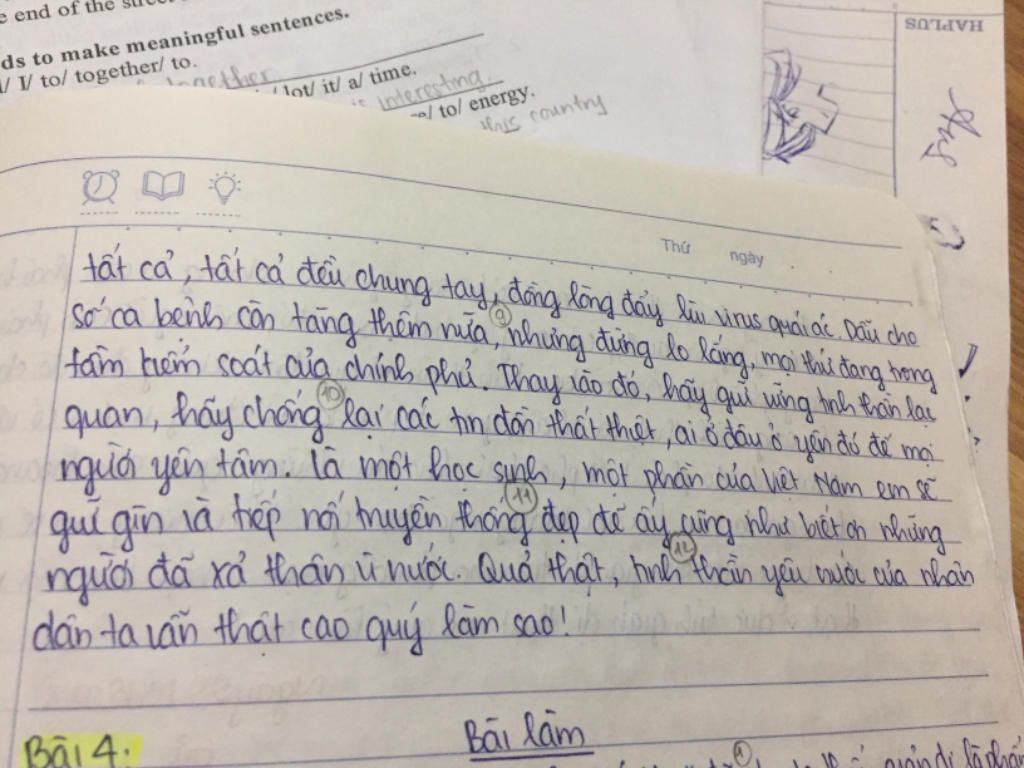 e end of the street
ds to make meaningful sentences.
/ I/ to/ together/ to.
together
lot/ it/ a/ time.
is interesting.
/ to/ energy.
this country
HAPLUS
Thứ ngày
tất cả, tất cả đều chung tay, đồng lòng đẩy lùi virus quái ác. Dẫu cho
số ca bệnh còn tăng thêm nữa, nhưng đừng lo lắng, mọi thứ đang trong
9
tầm kiểm soát của chính phủ. Thay vào đó, hãy giữ vững tinh thần lạc
10
quan, hãy chống lại các tin đồn thất thiệt, ai ở đâu ở yên đó để mọi
người yên tâm. Là một học sinh, một phần của Việt Nam em sẽ
11
giữ gìn và tiếp nối truyền thống đẹp đẽ ấy cũng như biết ơn những
12
người đã xả thân vì nước. Quả thật, tinh thần yêu nước của nhân
dân ta vẫn thật cao quý làm sao!
Bài làm
Bài 4:
1
giản dị là phẩ